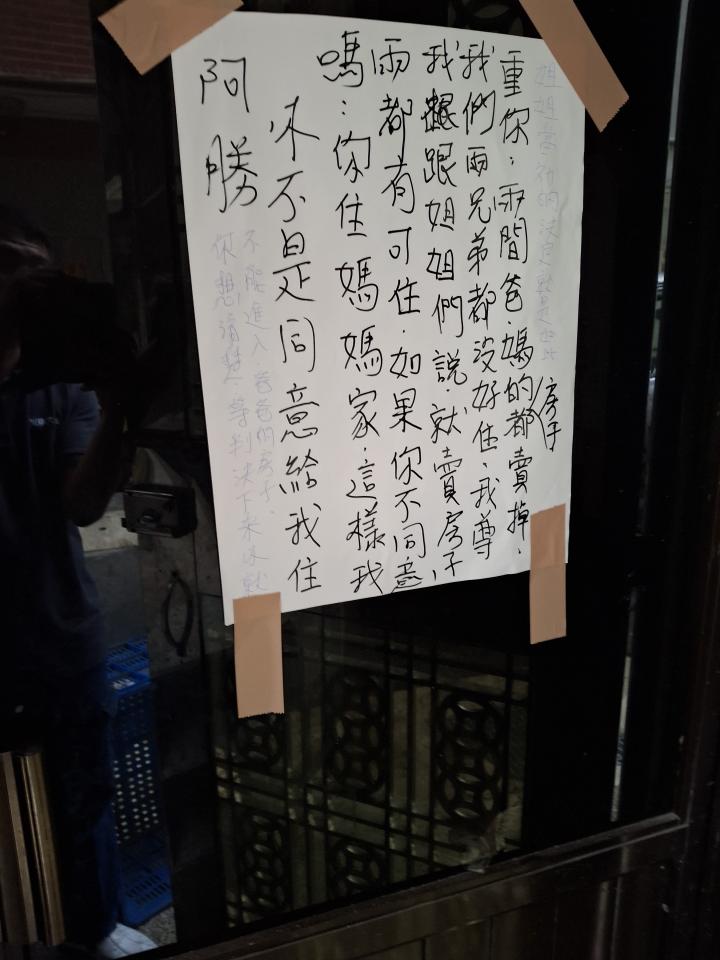 阿勝
你不是同意給我住
嗎:你住媽媽家.這樣我
兩都有可住.如果你不同意
我跟姐姐們說.就賣房子,
我們兩兄弟都沒好住、我尊
重你:兩間爸.媽的房子都賣掉.
你想清楚.等判決下來你就
不能進入.爸爸的房子.
姐姐 的決定就是如此